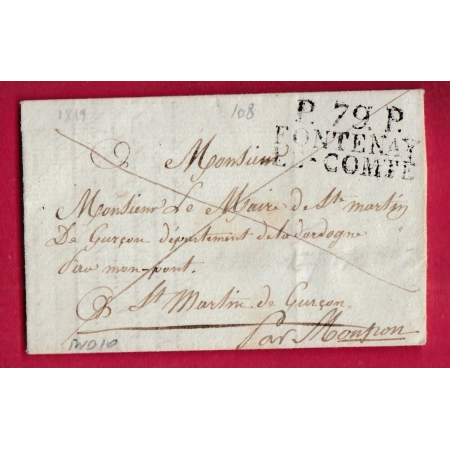 1819
108
P. 79. P.
FONTENAY
COMTE
Monsieur
Monsieur Le Maire de Ste martin
De Gurçon département de la dordogne
mon-pont.
A St Martin de Gurçon
Par Monpon